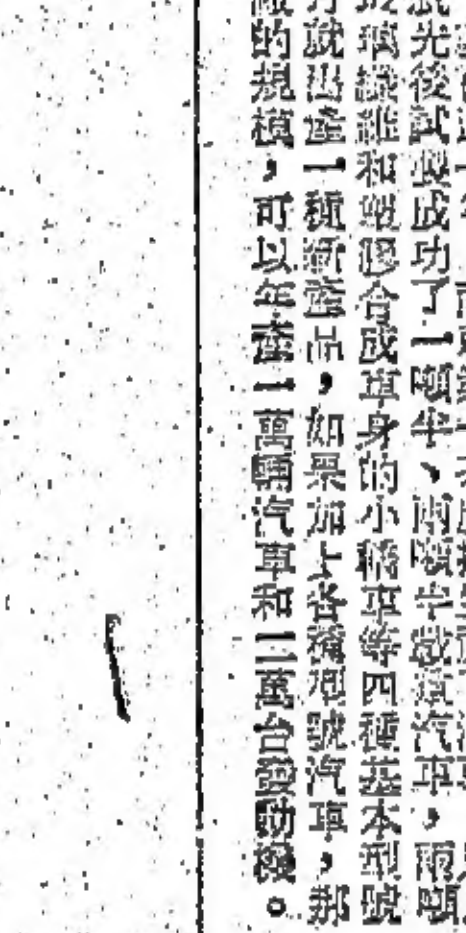 先後試製成功了一噸半、兩噸半載重汽車，兩噸
璃纖維和塑膠合成車身的小轎車等四種基本型號
就出產一種新產品，如果加上各種型號汽車，那
的規模，可以年產一萬輛汽車和二萬台發動機。